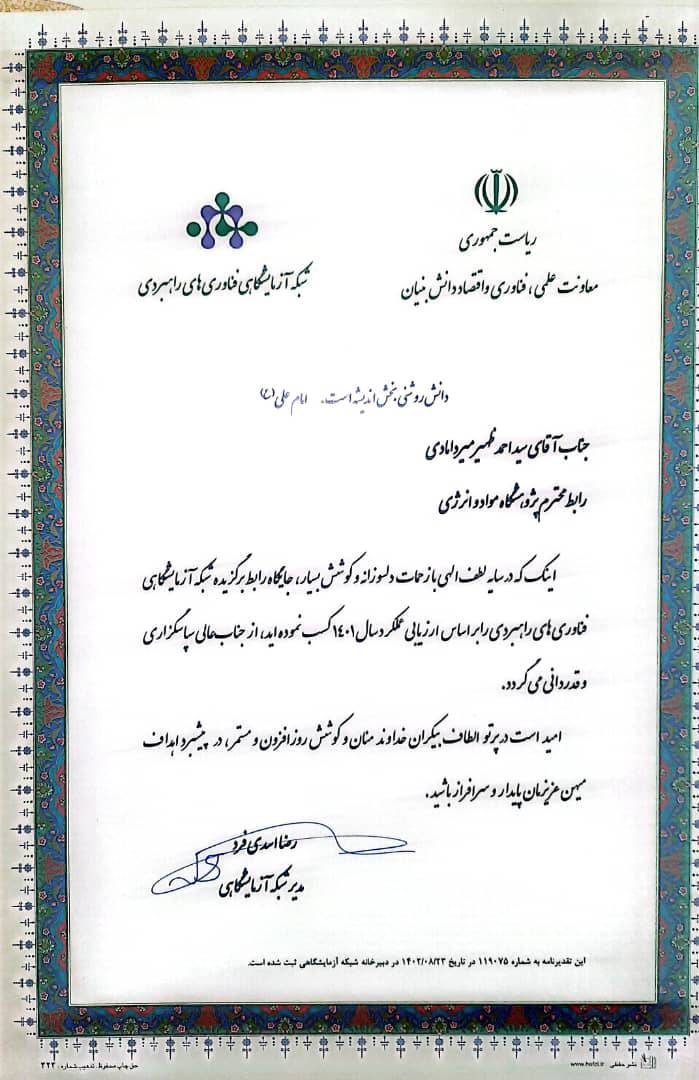 ریاست جمهوری
معاونت علمی، فناوری و اقتصاد دانش بنیان
شبکه آزمایشگاهی فناوری‌های راهبردی
دانش روشنی بخش اندیشه است. امام علی (ع)
جناب آقای سید احمد ظهیر میردامادی
رابط محترم پژوهشگاه مواد و انرژی
اینک که در سایه لطف الهی با زحمات دلسوزانه و کوشش بسیار، جایگاه رابط برگزیده شبکه آزمایشگاهی
فناوری‌های راهبردی را بر اساس ارزیابی عملکرد سال ۱۴۰۱ کسب نموده اید، از جناب عالی سپاسگزاری
و قدردانی می گردد.
امید است در پرتو الطاف بیکران خداوند منان و کوشش روز افزون و مستمر، در پیشبرد اهداف
میهن عزیزمان پایدار و سرافراز باشید.
رضا اسدی فرد
مدیر شبکه آزمایشگاهی
این تقدیرنامه به شماره ۱۱۹۰۷۵ در تاریخ ۱۴۰۲/۰۸/۲۳ در دبیرخانه شبکه آزمایشگاهی ثبت شده است.
نشر حفظی
حق چاپ محفوظ. تذهیب شماره: ۴۲۲